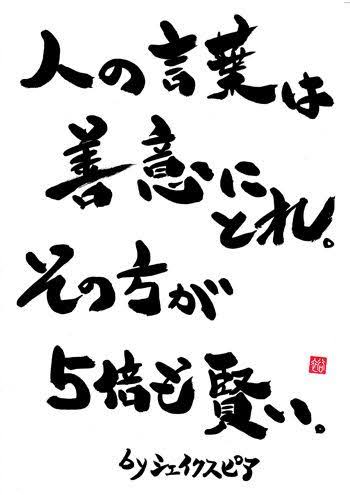 人の言葉は
善意に
とれ。
その方が
5倍も賢い。
byシェイクスピア